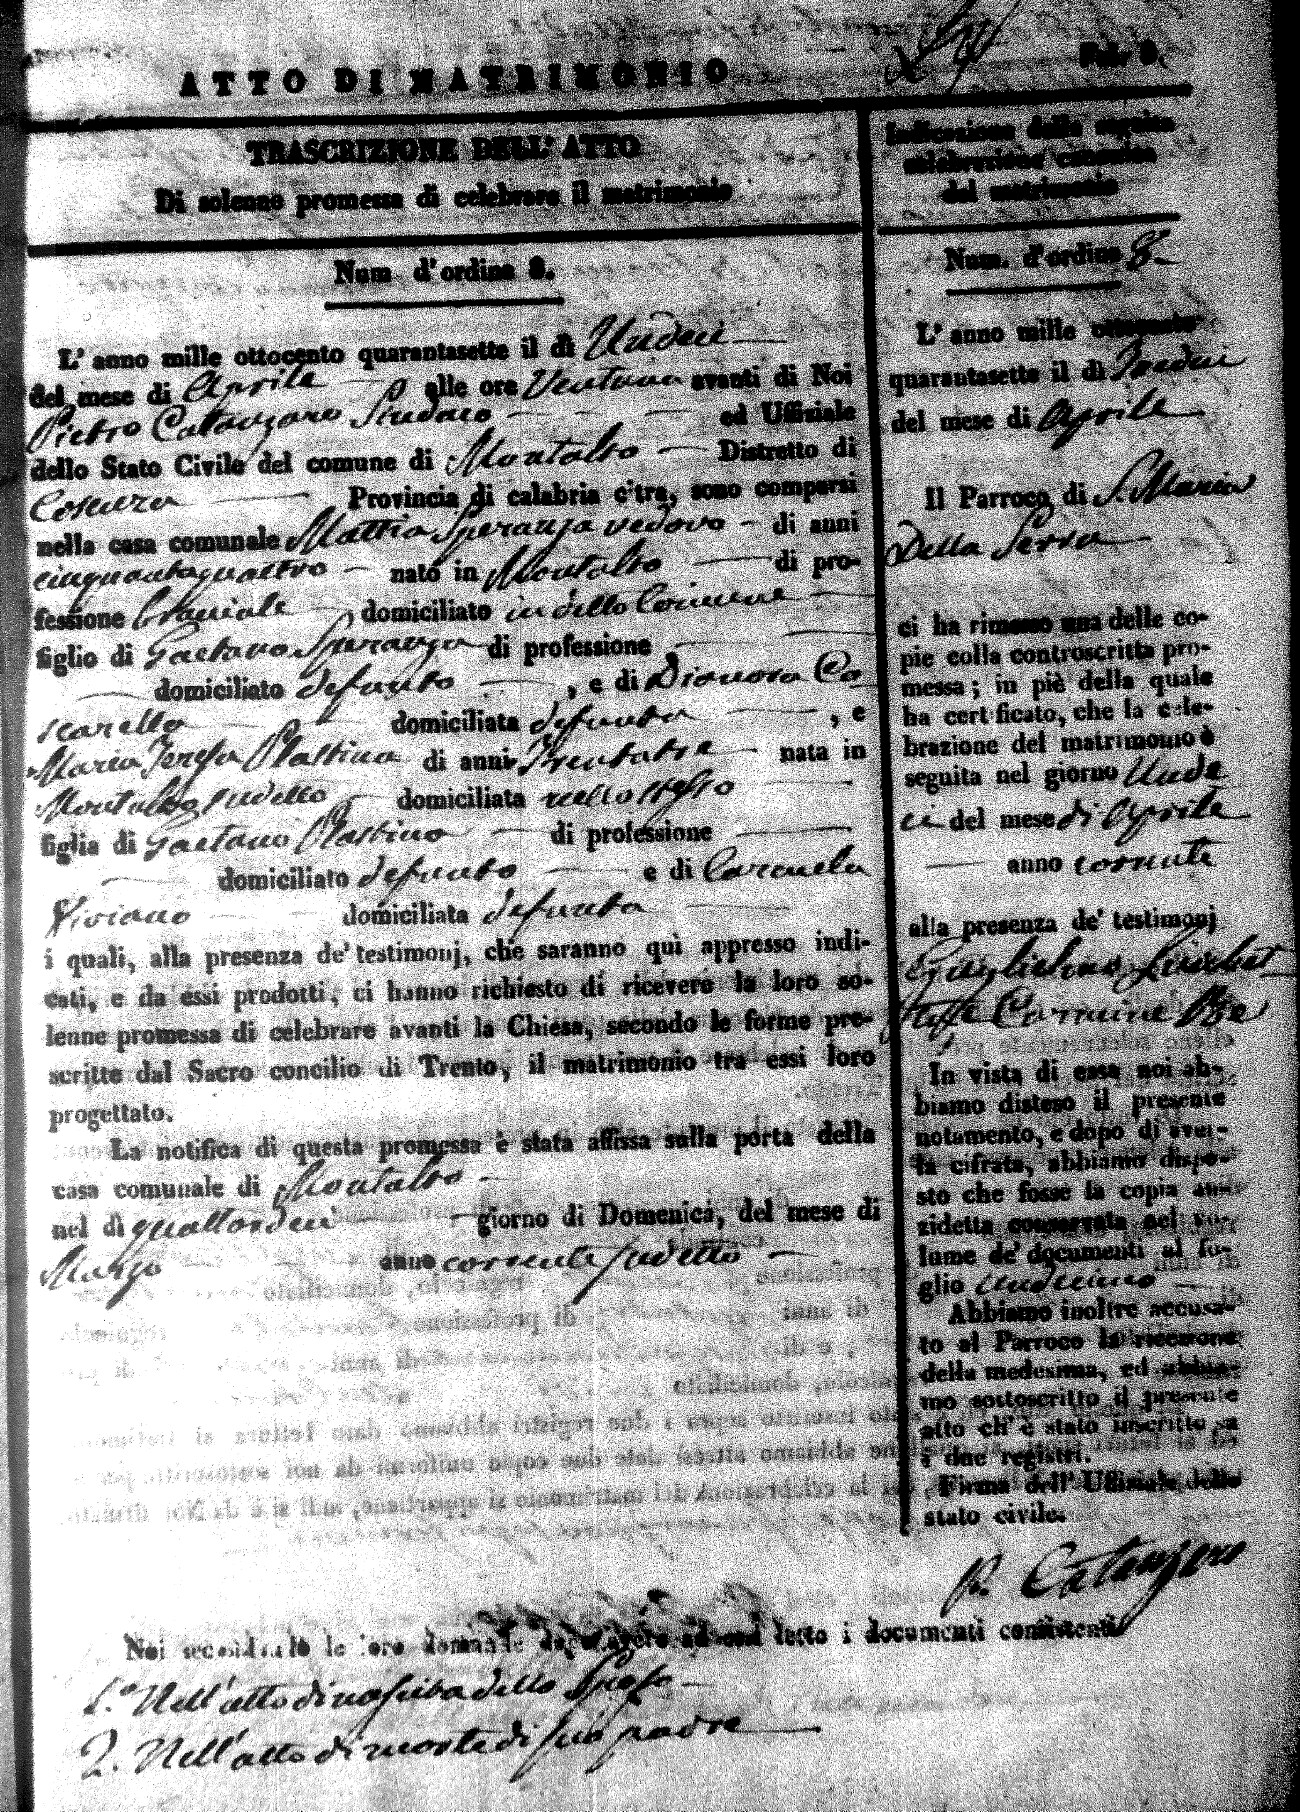 ATTO DI MATRIMONIO
TRASCRIZIONE DELL' ATTO
Di solenne promessa di celebrare il matrimonio
Num d'ordine 8.
L' anno mille ottocento quarantasette il dì Undeci
del mese di Aprile alle ore Ventuna avanti di Noi
Pietro Catanzaro Sindaco ed Uffiziale
dello Stato Civile del comune di Montalto Distretto di
Cosenza Provincia di calabria c'tra, sono comparsi
nella casa comunale Mattia Speranza vedovo di anni
cinquantaquattro nato in Montalto di pro-
fessione domiciliato in detto Comune
figlio di Gaetano Speranza di professione
domiciliato defunto , e di Dianora Co
scarella domiciliata defunta , e
Maria Teresa Plastina di anni Trentatre nata in
Montalto sudetto domiciliata nello stesso
figlia di Gaetano Plastino di professione
domiciliato defunto e di Carmela
Viviano domiciliata defunta
i quali, alla presenza de' testimonj, che saranno quì appresso indi-
cati, e da essi prodotti, ci hanno richiesto di ricevere la loro so-
lenne promessa di celebrare avanti la Chiesa, secondo le forme pre-
scritte dal Sacro concilio di Trento, il matrimonio tra essi loro
progettato.
La notifica di questa promessa è stata affissa sulla porta della
casa comunale di Montalto
nel dì quattordeci giorno di Domenica, del mese di
Marzo anno corrente sudetto
Noi secondando le loro domande dopo avere ad essi letto i documenti consistenti
1.° Nell'atto di nascita dello Sposo
2. Nell'atto di morte di suo padre
Indicazione della seguita
celebrazione canonica
del matrimonio
Num. d'ordine 8.
L' anno mille ottocento
quarantasette il dì
del mese di Aprile
Il Parroco di S. Maria
Della Serra
ci ha rimesso una delle co-
pie colla controscritta pro-
messa; in piè della quale
ha cert ficato, che la cele-
brazione del matrimonio è
seguita nel giorno Unde
ci del mese di Aprile
anno corrente
alla presenza de' testimonj
Carmine
In vista di essa noi ab-
biamo disteso il presente
notamento, e dopo di aver-
la cifrata, abbiamo dispo-
sto che fosse la copia anzi-
zidetta conservata nel vo-
lume de' documenti al fo-
glio undecimo
Abbiamo inoltre accusa-
to al Parroco la ricezione
della medesima, ed abbia-
mo sottoscritto il presente
atto ch' è stato inscritto su
i due registri.
Firma dell' Uffiziale dello
stato civile.
P. Catanzaro